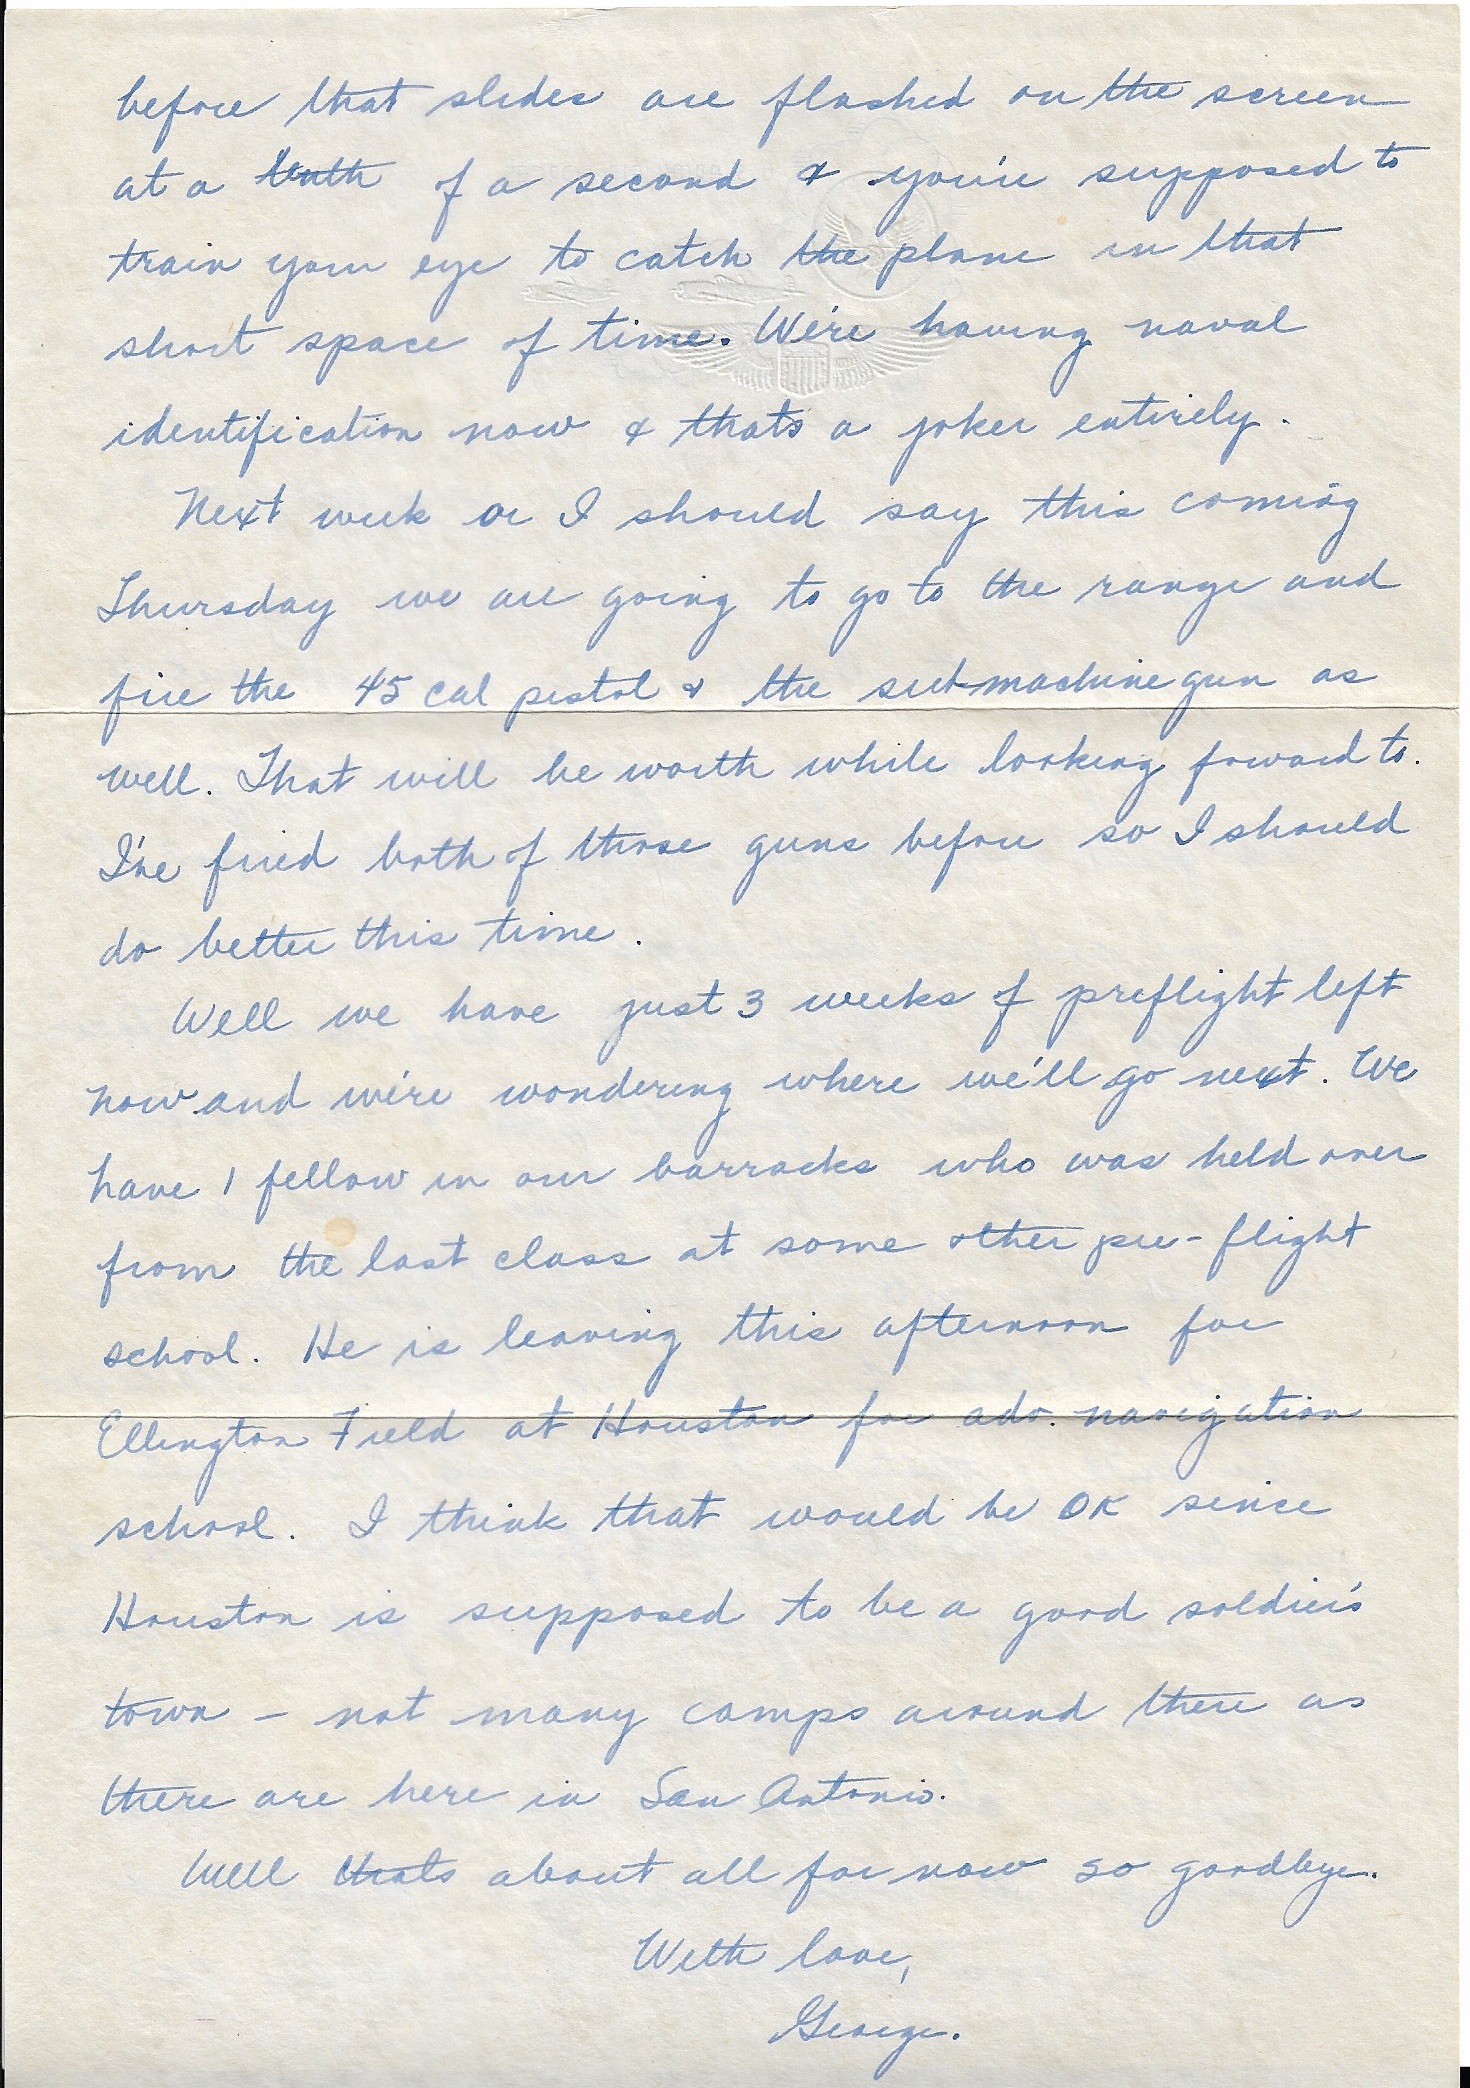 before that slides are flashed on the screen
at a tenth of a second & you're supposed to
train your eye to catch the plane in that
short space of time. We're having naval
identification now & thats a joker entirely.
Next week or I should say this coming
Thursday we are going to go to the range and
fire the 45 cal pistol & the sub-machine gun as
well. That will be worth while looking forward to.
I've fired both of those guns before so I should
do better this time.
Well we have just 3 weeks of preflight left
now and we're wondering where we'll go next. We
have 1 fellow in our barracks who was held over
from the last class at some other pre-flight
school. He is leaving this afternoon for
Ellington Field at Houston for adv. navigation
school. I think that would be OK since
Houston is supposed to be a good soldier's
town - not many camps around there as
there are here in San Antonio.
Well thats about all for now so goodbye.
With love,
George.